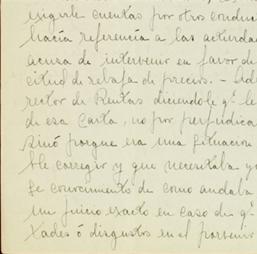 exigirle cuentas por otros conduc
hacía referencia a las actividad
acusa de intervenir en favor de
citud de rebaja de precios. - Ad
rector de Rentas diciendole q.e le
de esa Carta, no por perjudica
sinó porque era una situacion
ble corregir y que necesitaba yo
de conocimiento de como andaba
un juicio exacto en caso de q.e
tades ó disgustos en el porvenir